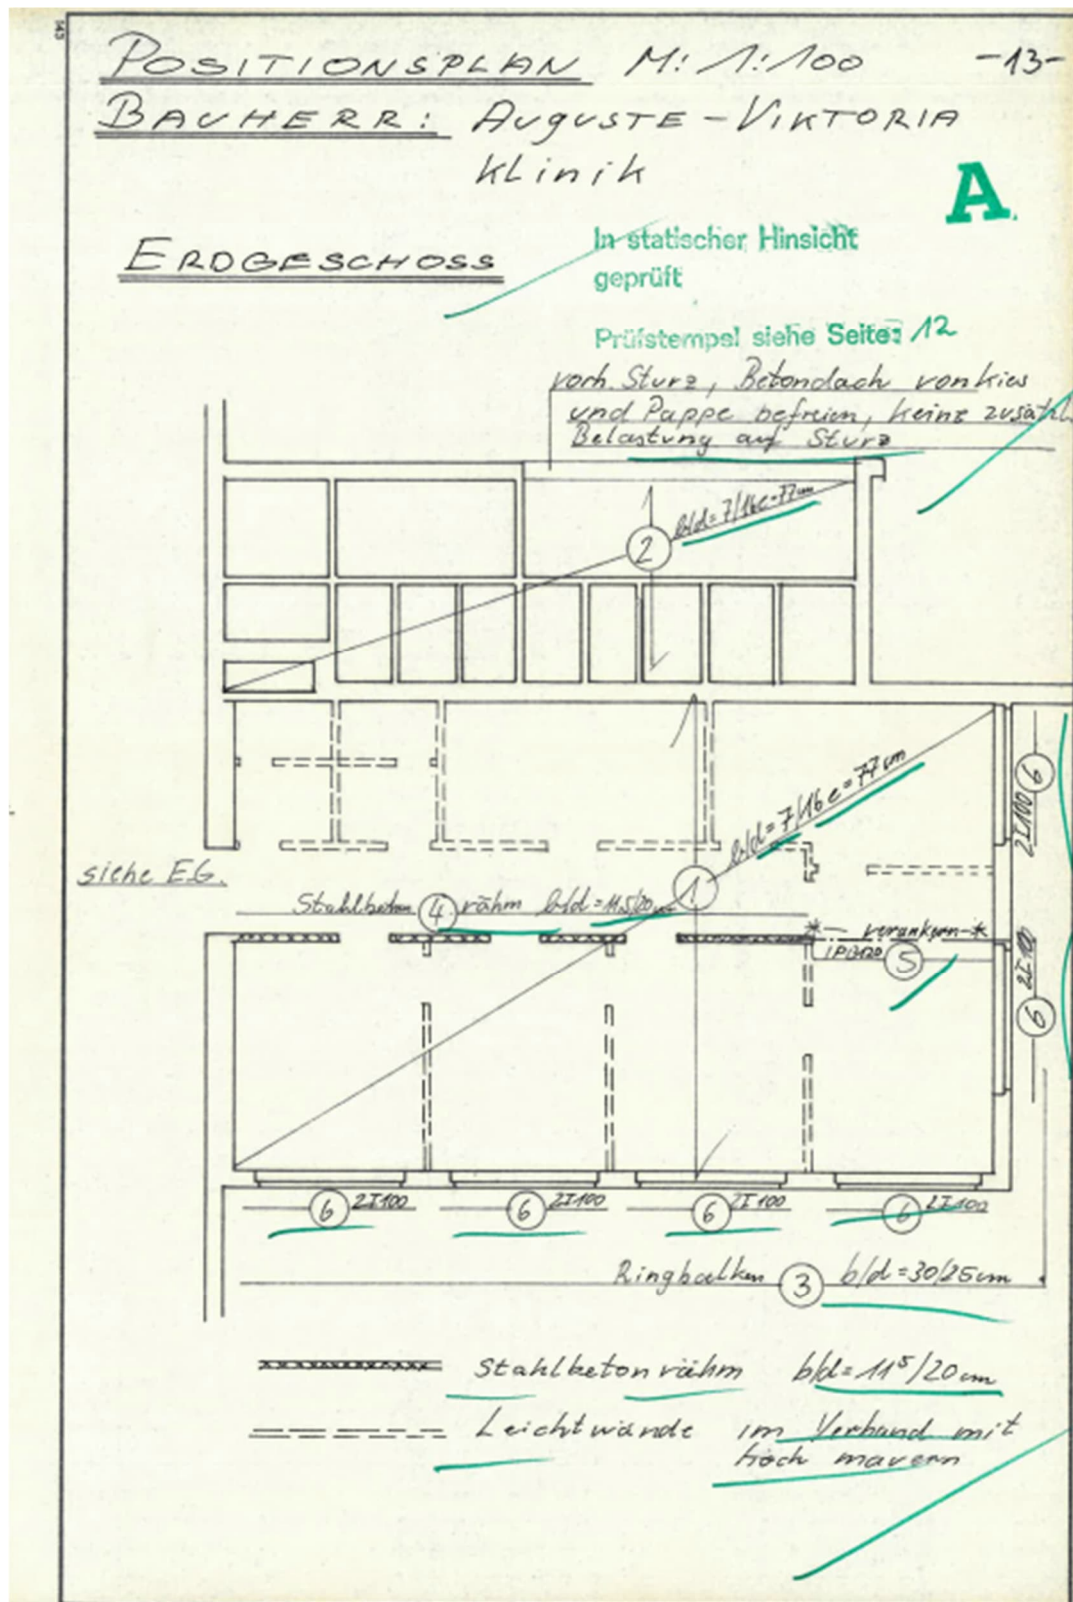 POSITIONSPLAN M: 1:100 -13-
BAUHERR: AUGUSTE-VIKTORIA
KLINIK
A
In statischer Hinsicht
geprüft
ERDGESCHOSS
Prüfstempel siehe Seite: 12
vorh. Sturz, Betondach von Kies
und Pappe befreien, keine zusätzl.
Belastung auf Sturz
b/d=7/16 e=77cm
2
6
2I100
b/d=7/16 e=77cm
siehe E.G.
1
Stahlbeton 4 rähm b/d=11,5/20cm
verankern
IPB120 5
2I100
6
6 2I100 6 2I100 6 2I100 6 2I100
Ringbalken 3 b/d=30/25cm
Stahlbetonrähm b/d=11⁵/20cm
Leichtwände im Verband mit
hoch mauern